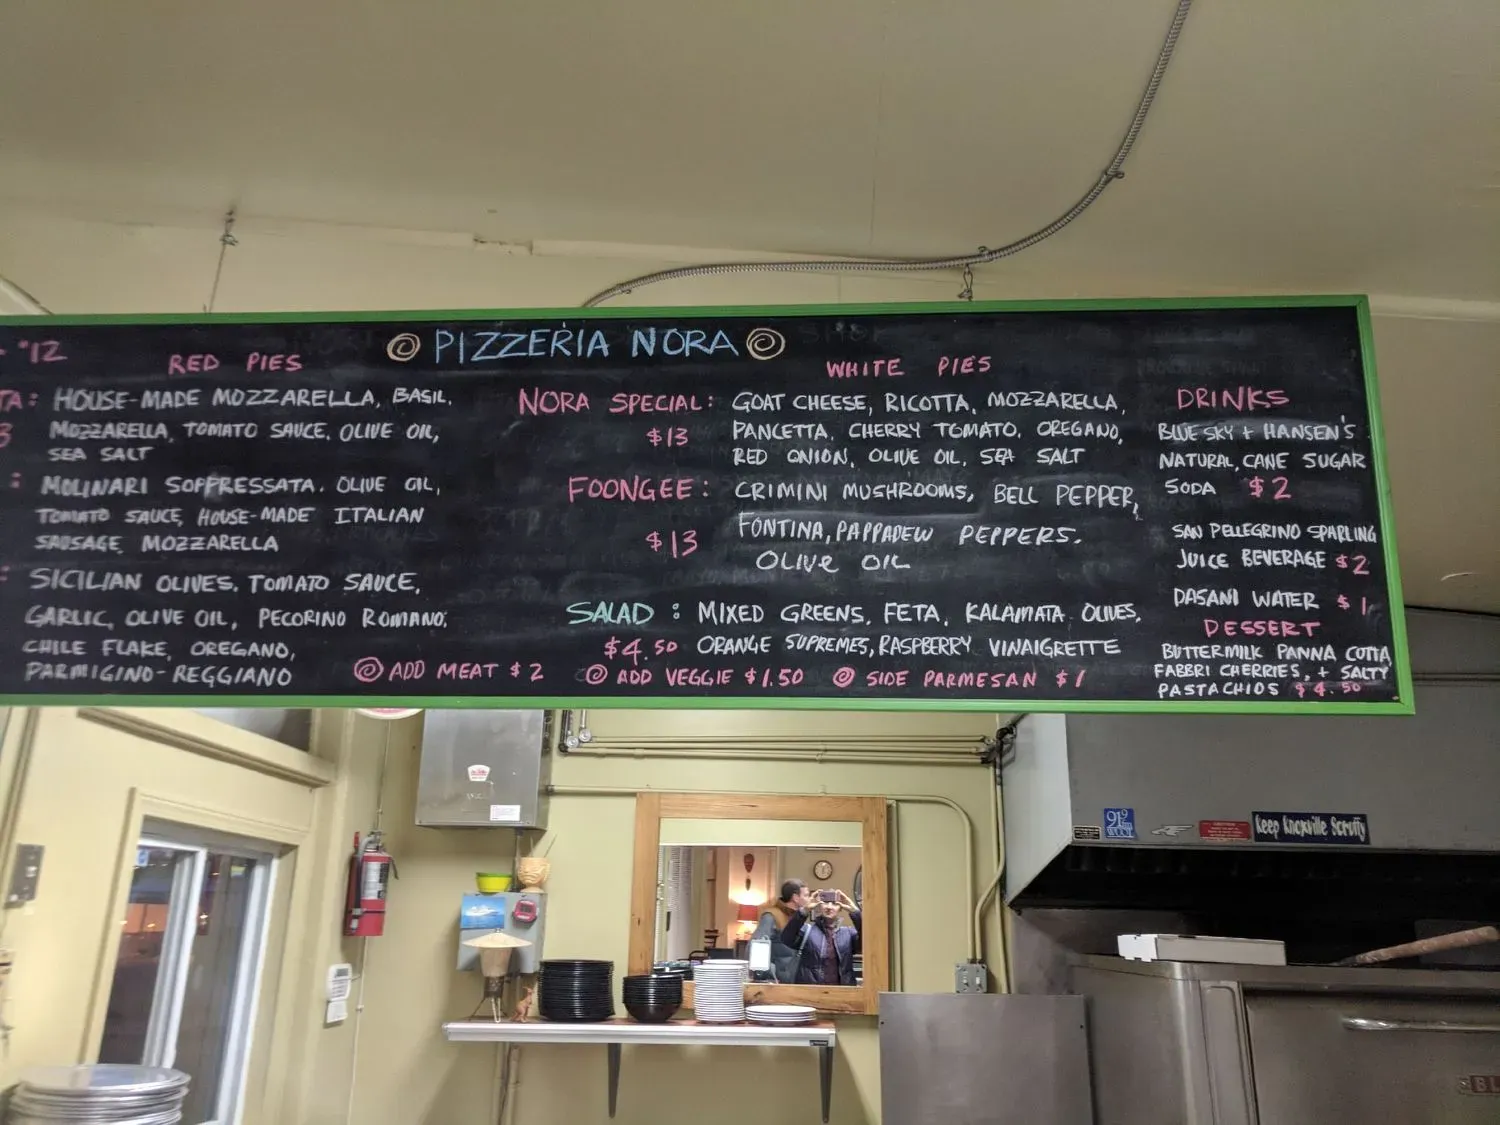 PIZZERIA NORA
$12
RED PIES
TA: HOUSE-MADE MOZZARELLA, BASIL,
3 MOZZARELLA, TOMATO SAUCE, OLIVE OIL,
SEA SALT
: MOLINARI SOPPRESSATA, OLIVE OIL,
TOMATO SAUCE, HOUSE-MADE ITALIAN
SAUSAGE, MOZZARELLA
: SICILIAN OLIVES, TOMATO SAUCE,
GARLIC, OLIVE OIL, PECORINO ROMANO,
CHILE FLAKE, OREGANO,
PARMIGINO-REGGIANO
WHITE PIES
NORA SPECIAL: GOAT CHEESE, RICOTTA, MOZZARELLA,
$13 PANCETTA, CHERRY TOMATO, OREGANO,
RED ONION, OLIVE OIL, SEA SALT
FOONGEE: CRIMINI MUSHROOMS, BELL PEPPER,
$13 FONTINA, PAPPADEW PEPPERS,
OLIVE OIL
SALAD: MIXED GREENS, FETA, KALAMATA OLIVES,
$4.50 ORANGE SUPREMES, RASPBERRY VINAIGRETTE
ADD MEAT $2 ADD VEGGIE $1.50 SIDE PARMESAN $1
DRINKS
BLUE SKY + HANSEN'S
NATURAL, CANE SUGAR
SODA $2
SAN PELLEGRINO SPARLING
JUICE BEVERAGE $2
DASANI WATER $1
DESSERT
BUTTERMILK PANNA COTTA,
FABBRI CHERRIES, + SALTY
PASTACHIOS $4.50
91.9 fm
WUOT
Keep Knoxville Scruffy
BL